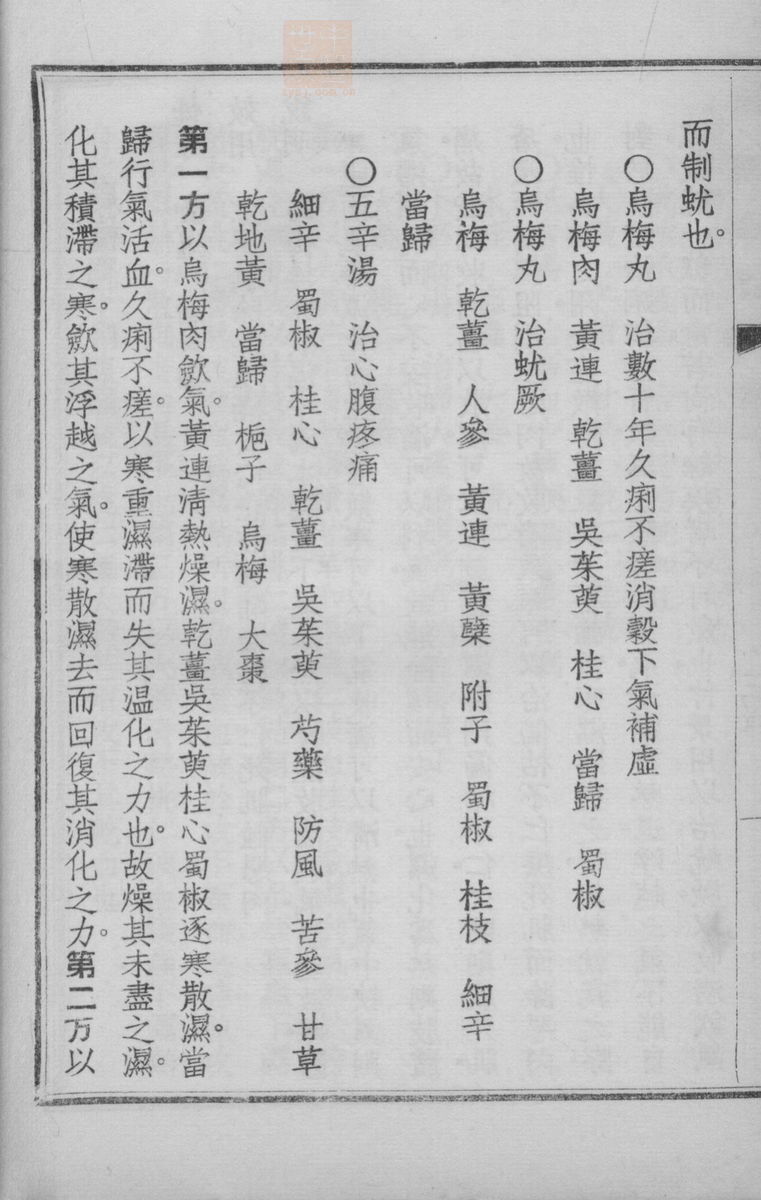 而制蚘也。
〇烏梅丸　治數十年久痢不瘥消穀下氣補虛
烏梅肉　黃連　乾薑　吳茱萸　桂心　當歸　蜀椒
〇烏梅丸　治蚘厥
烏梅　乾薑　人參　黃連　黃蘗　附子　蜀椒　桂枝　細辛
當歸
〇五辛湯　治心腹疼痛
細辛　蜀椒　桂心　乾薑　吳茱萸　芍藥　防風　苦參　甘草
乾地黃　當歸　梔子　烏梅　大棗
第一方以烏梅肉歛氣。黃連淸熱燥濕。乾薑吳茱萸桂心蜀椒逐寒散濕。當
歸行氣活血。久痢不瘥。以寒重濕滯而失其温化之力也。故燥其未盡之濕。
化其積滯之寒。歛其浮越之氣。使寒散濕去而回復其消化之力。第二方以